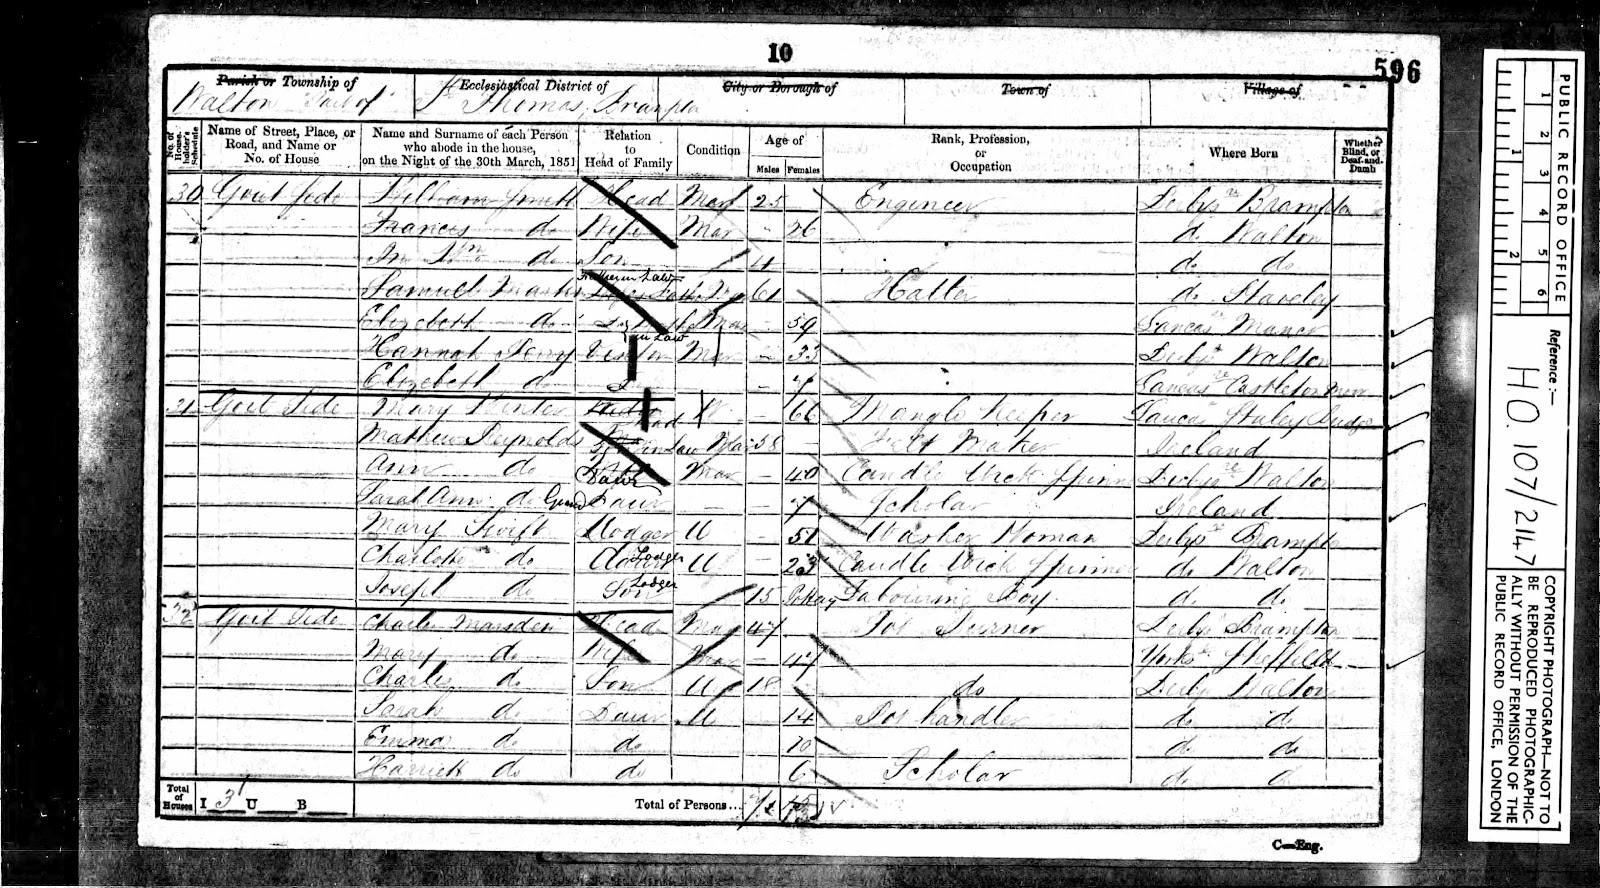 10
596
Parish or Township of
Ecclesiastical District of
City or Borough of
Town of
Village of
Walton Part of
St Thomas, Brampton
No. of House-holder's Schedule
Name of Street, Place, or Road, and Name or No. of House
Name and Surname of each Person who abode in the house, on the Night of the 30th March, 1851
Relation to Head of Family
Condition
Age of
Males Females
Rank, Profession, or Occupation
Where Born
Whether Blind, or Deaf-and-Dumb
30 Goit Side William Smith Head Mar 25 Engineer Derbys Brampton
Frances do Wife Mar - 26 do Walton
Jn Wm do Son 4 do do
Samuel 61 Hatter do Staveley
Elizebeth do Mar - 59 Lancas
Hannah Perry Visitor Mar - 33 Derbys Walton
Elizebeth do - 7 Lancas Castleton
31 Goit Side Mary W - 66 Mangle Keeper Lanca Staley
Mathew Reynolds Son in Law Mar 58 - Felt Maker Ireland
Ann do Daur Mar - 40 Candle Wick Spinner Derbys Walton
Sarah Ann do Grand Daur - - 7 Scholar Ireland
Mary Swift Lodger U - 51 Washer Woman Derbys Brampton
Charlotte do Lodger U 23 Candle Wick Spinner do Walton
Joseph do Son Lodger 15 Labouring Boy do do
32 Goit Side Charles Marsden Head Mar 47 Pot Turner Derbys Brampton
Mary do Wife Mar - 47 Yorks Sheffield
Charles do Son U 18 do Derby Walton
Sarah do Daur U 14 Pot handler do do
Emma do do 10 do do
Harriett do do 6 Scholar do do
Total of Houses I 3 U B
Total of Persons...
C—Eng.
PUBLIC RECORD OFFICE
1 2 3 4 5 6
1 2
Reference :—
H.O. 107/2147
COPYRIGHT PHOTOGRAPH—NOT TO
BE REPRODUCED PHOTOGRAPHIC-
ALLY WITHOUT PERMISSION OF THE
PUBLIC RECORD OFFICE, LONDON